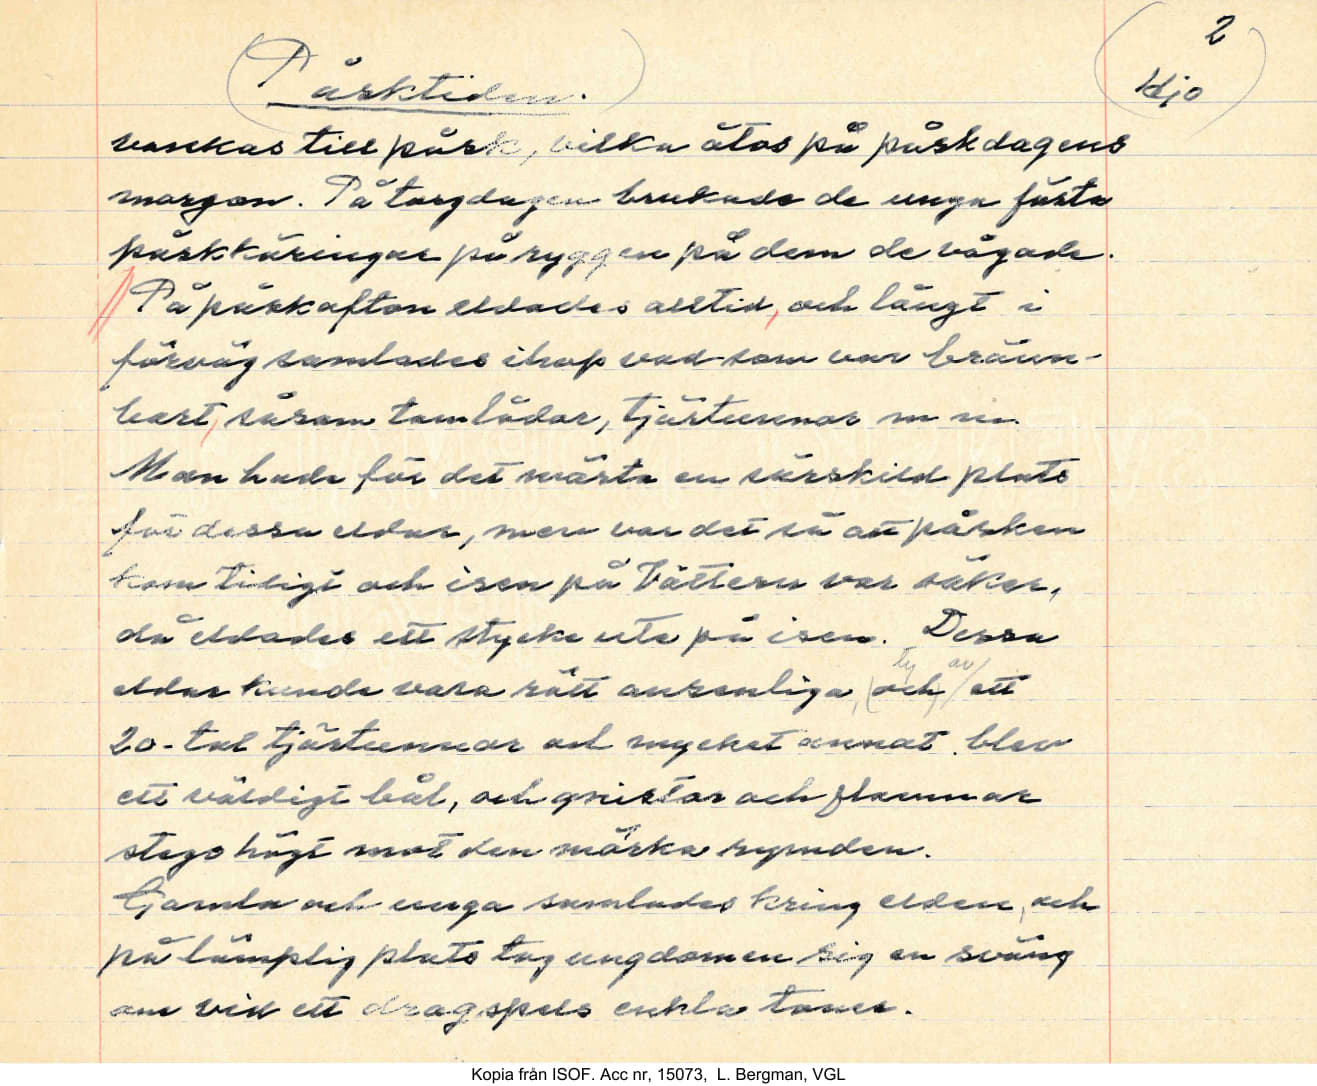 2
Hjo
Påsktiden.
vankas till påsk, vilka ätos på påskdagens
morgon. På torgdagen brukade de unga fästa
påskkäringar på ryggen på dem de vågade.
På påskafton eldades alltid, och långt i
förväg samlades ihop vad som var bränn-
bart, såsom tomlådor, tjärtunnor m m.
Man hade för det mästa en särskild plats
för dessa eldar, men var det så att påsken
kom tidigt och isen på Vättern var säker,
då eldades ett stycke ute på isen. Dessa
ty av
eldar kunde vara rätt ansenliga, (och) ett
20-tal tjärtunnor och mycket annat blev
ett väldigt bål, och gnistor och flammor
stego högt mot den mörka rymden.
Gamla och unga samlades kring elden, och
på lämplig plats tog ungdomen sig en sväng
om vid ett dragspels enkla toner.
Kopia från ISOF. Acc nr, 15073, L. Bergman, VGL